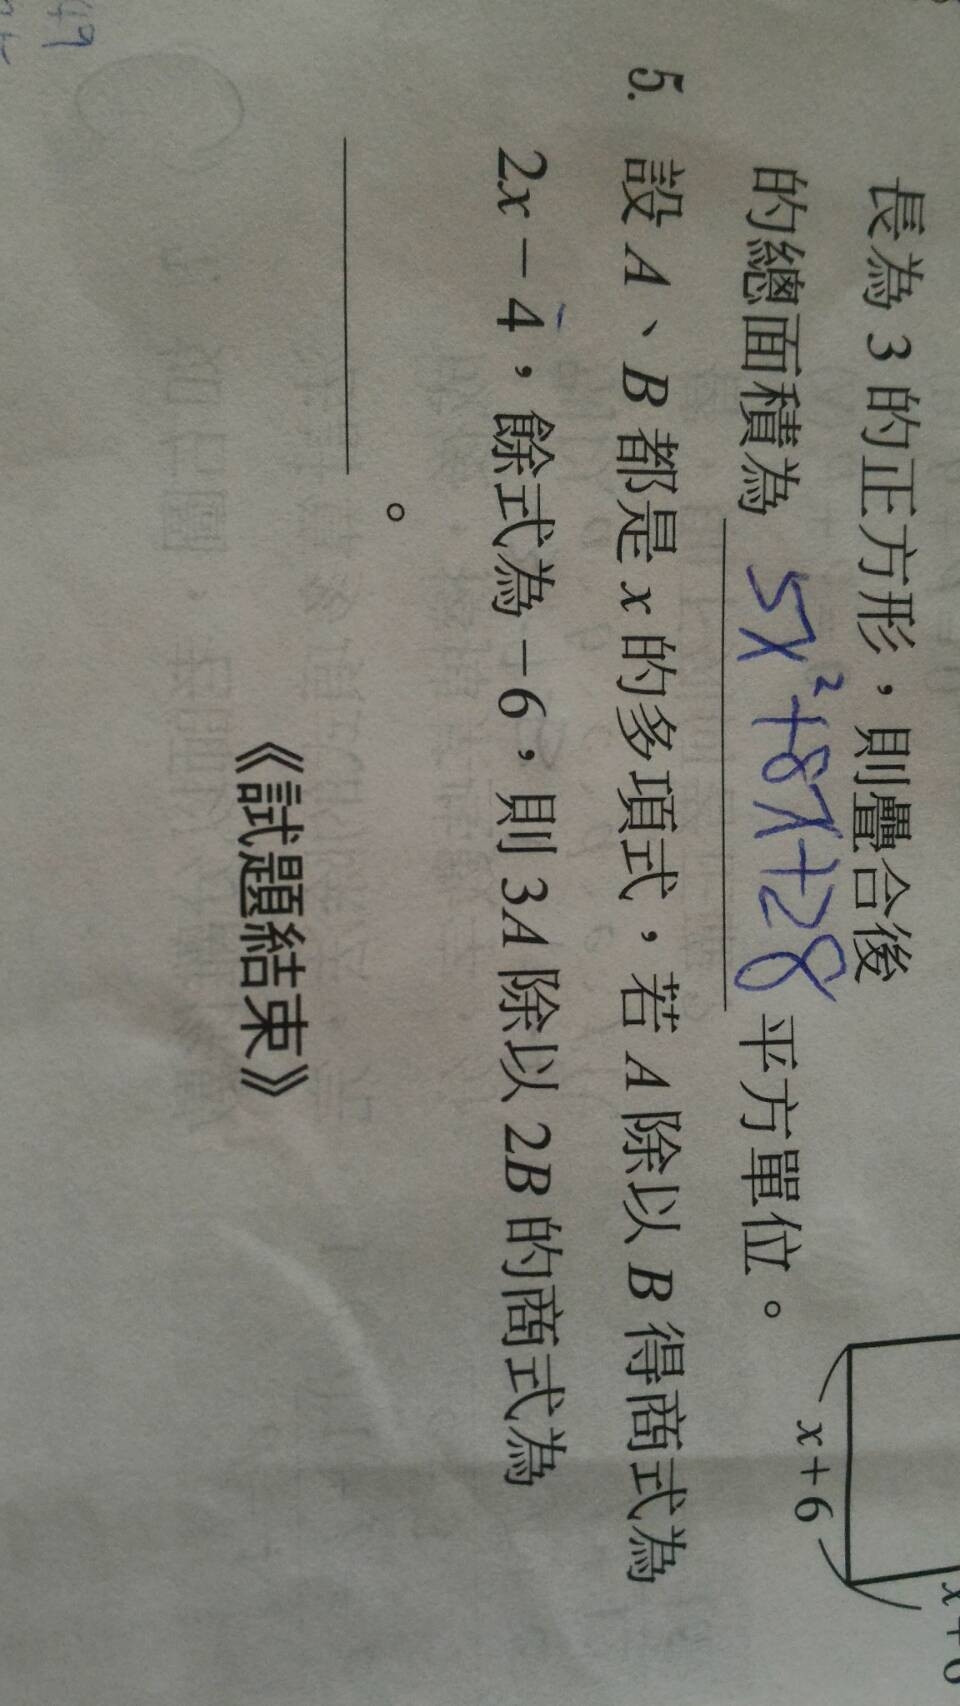 長為 3 的正方形，則疊合後
的總面積為 5x²+8x+28 平方單位。
x+6
x+6
5. 設 A、B 都是 x 的多項式，若 A 除以 B 得商式為
2x－4，餘式為－6，則 3A 除以 2B 的商式為
＿＿＿＿＿。
《試題結束》